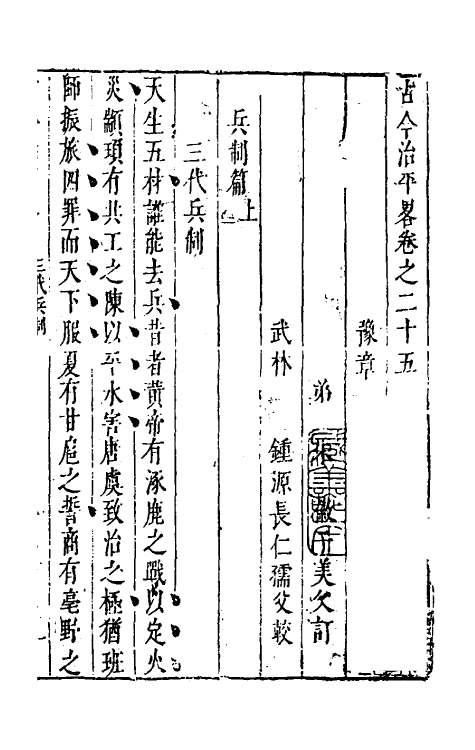 古今治平畧卷之二十五
豫章
弟 美父訂
武林 鍾源長仁孺父較
兵制篇上
三代兵制
天生五材誰能去兵昔者黄帝有涿鹿之戰以定火
災顓頊有共工之陳以平水害唐虞致治之極猶班
師振旅四罪而天下服夏有甘扈之誓商有亳野之
三代兵制